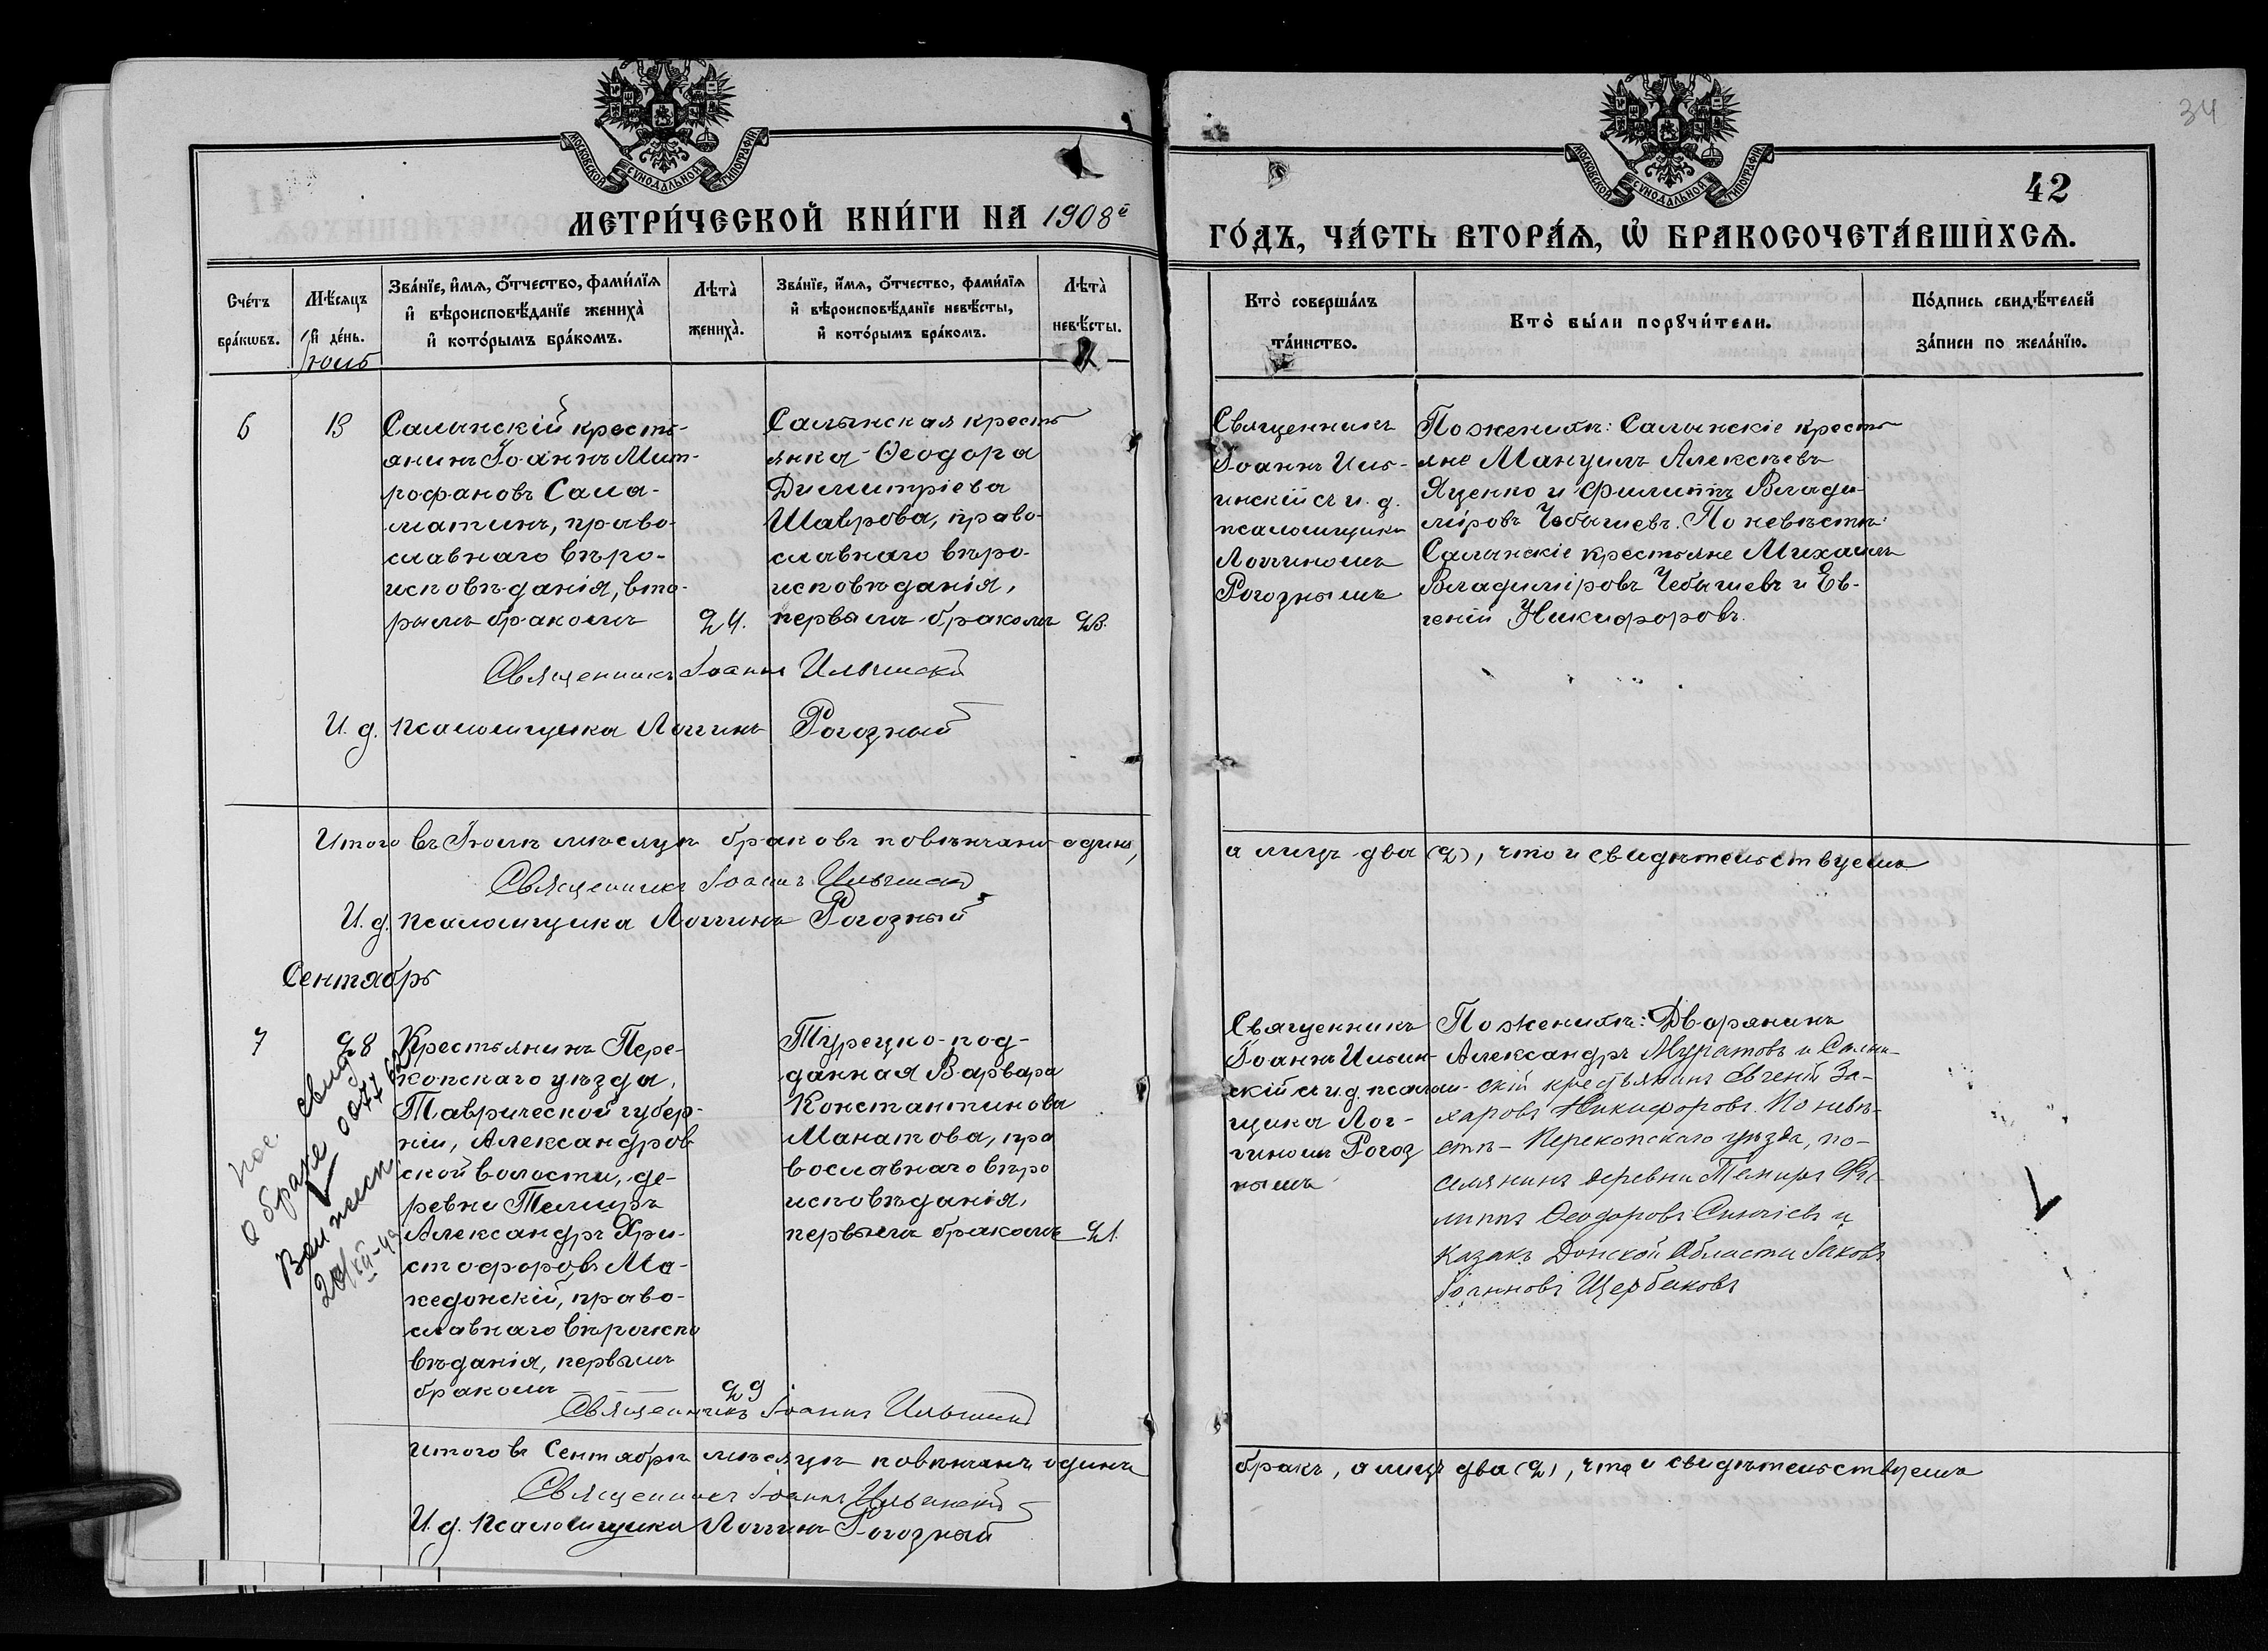 34
МОСКОВСКОЙ СѴНОДАЛЬНОЙ ТИПОГРАФІИ
МОСКОВСКОЙ СѴНОДАЛЬНОЙ ТИПОГРАФІИ
42
МЕТРИ́ЧЕСКОЙ КНИ́ГИ НА 1908й
ГО́ДЪ, ЧА́СТЬ ВТОРА́Ѧ, Ѡ БРАКОСОЧЕТА́ВШИХСѦ.
Сче́тъ
бра́кѡвъ.
Мѣ́сяцъ
и де́нь.
Зва́нїе, и́мѧ, ѻ́тчество, фами́лїѧ
и вѣроисповѣ́данїе жениха̀
и кото́рымъ бра́комъ.
Лѣта̀
жениха̀.
Зва́нїе, и́мѧ, ѻ́тчество, фами́лїѧ
и вѣроисповѣ́данїе невѣ́сты,
и кото́рымъ бра́комъ.
Лѣта̀
невѣ́сты.
Кто̀ соверша́лъ
та́инство.
Кто̀ бы́ли порꙋчи́тели.
По́дпись свидѣ́телей
за́писи по жела́нїю.
Іюль
6
13
Салынскій кресть-
янинъ Іоаннъ Мит-
рофановъ Сала-
матинъ, право-
славнаго вѣро-
исповѣданія, вто-
рымъ бракомъ
24.
Салынская кресть
янка Ѳеодора
Димитріева
Шаврова, право-
славнаго вѣро-
исповѣданія,
первымъ бракомъ
23.
Священникъ
Іоаннъ Иль-
инскій съ и. д.
псаломщика
Логгиномъ
Рогознымъ
По женихѣ: Салынскіе кресть
яне Мануилъ Алексѣевъ
Яценко и Филиппъ Влади-
міровъ Чебышевъ. По невѣстѣ:
Салынскіе крестьяне Михаилъ
Владиміровъ Чебышевъ и Ев-
геній Никифоровъ.
Священникъ Іоаннъ Ильинскій
И. д. псаломщика Логгинъ Рогозный
Итого въ Іюлѣ мѣсяцѣ браковъ повѣнчано одинъ,
а лицъ два (2), что и свидѣтельствуемъ
Священникъ Іоаннъ Ильинскій
И. д. псаломщика Логгинъ Рогозный
Сентябрь
7
28
свид.
о браке
20/XII-49
Крестьянинъ Пере-
копскаго уѣзда,
Таврической губер-
ніи, Александров
ской волости, де-
ревни Темиръ
Александръ Хри-
стофоровъ Ма-
кедонскій, право-
славнаго вѣроиспо
вѣданія, первымъ
бракомъ
29
Турецко-под-
данная Варвара
Константинова
Манатова, пра
вославнаго вѣро
исповѣданія,
первымъ бракомъ
21.
Священникъ
Іоаннъ Ильин-
скій съ и.д. псалом-
щика Лог-
гиномъ Рогоз
нымъ
По женихѣ: Дворянинъ
Александръ Муратовъ и Салын-
скій крестьянинъ Евгеній За-
харовъ Никифоровъ. По невѣ-
стѣ - Перекопскаго уѣзда, по-
селянинъ деревни Темиръ Фи-
липпъ Ѳеодоровъ и
казакъ Донской Области Іаковъ
Іоанновъ Щербаковъ
Священникъ Іоаннъ Ильинскій
Итого въ Сентябрѣ мѣсяцѣ повѣнчанъ одинъ
бракъ, а лицъ два (2), что и свидѣтельствуемъ
Священникъ Іоаннъ Ильинскій
И. д. псаломщика Логгинъ Рогозный